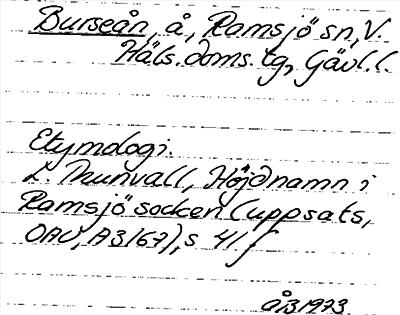 Burseån, å, Ramsjö sn, V.
Häls. doms. tg, Gävl. l.
Etymologi.
L. Nunvall, Höjdnamn i
Ramsjö socken (uppsats,
OAU, A3167), s 41 f
ÅB 1973